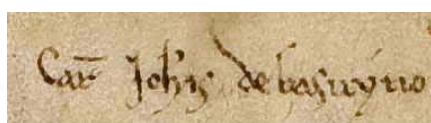 Car̄ Joh̄is de baswyno